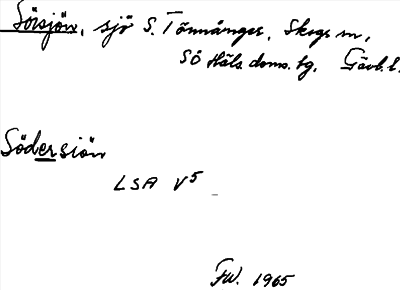 Sörsjön, sjö S. Tönnånger, Skogs sn,
SÖ Häls. doms. tg. Gävb. l.
Södersiön
LSA V5
FW. 1965